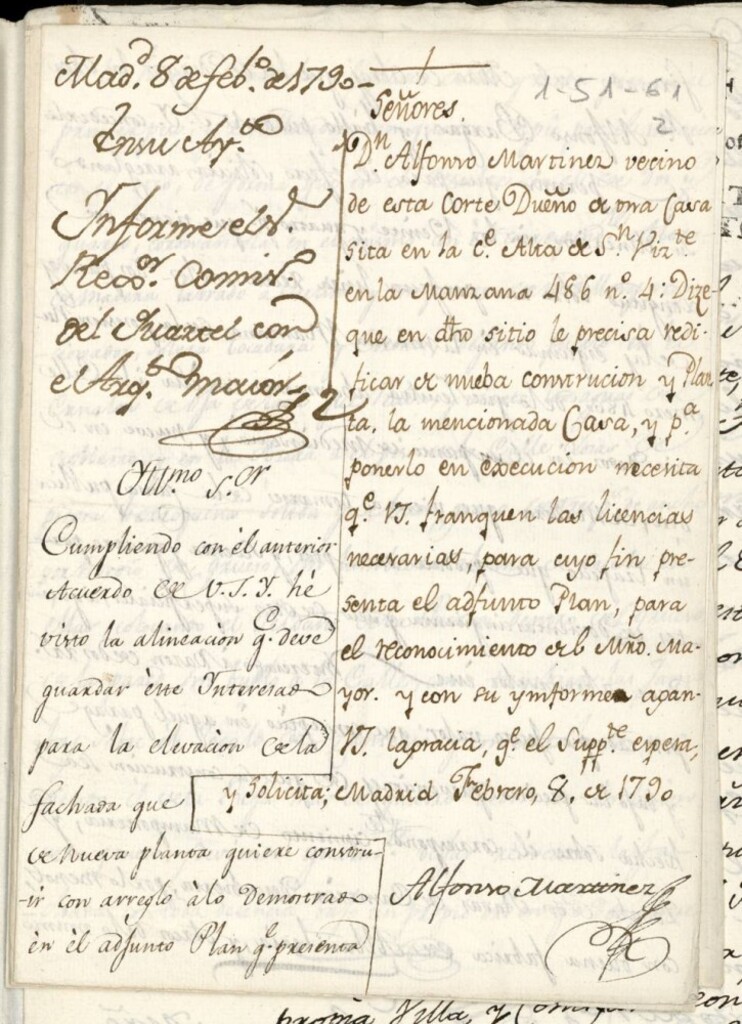 Mad.d 8 de feb.o de 1790
En su Ay.to
Informe el S.r
Rec.or Comis.o
del Quartel con
el Arq.to maior
Ill.mo S.or
Cumpliendo con él anterior
Acuerdo de V.S.Y. hé
visto la alineacion q.e deve
guardar éste Interesado
para la elevacion de la
fachada que
de nueva planta quiere constru-
-ir con arreglo álo Demostrado
én él adjunto Plan q.e presenta
1-51-61
2
Señores.
D.n Alfonso Martinez vecino
de esta Corte Dueño de una Casa
sita en la c.e Alta de S.n Viz.te
en la Manzana 486 n.o 4: Dize
que en dho sitio le precisa redi-
ficar de nueba construcion y Plan
ta, la mencionada Casa, y p.a
ponerlo en execucion necesita
q.e VS. franquen las licencias
necesarias, para cuyo fin pre-
senta el adjunto Plan, para
el reconocimiento del Mro. Ma-
yor. y con su ymforme agan
VS. la gracia, q.e el Supp.te espera,
y Solicita; Madrid Febrero, 8, de 1790
Alfonso Martinez
propia Villa, y